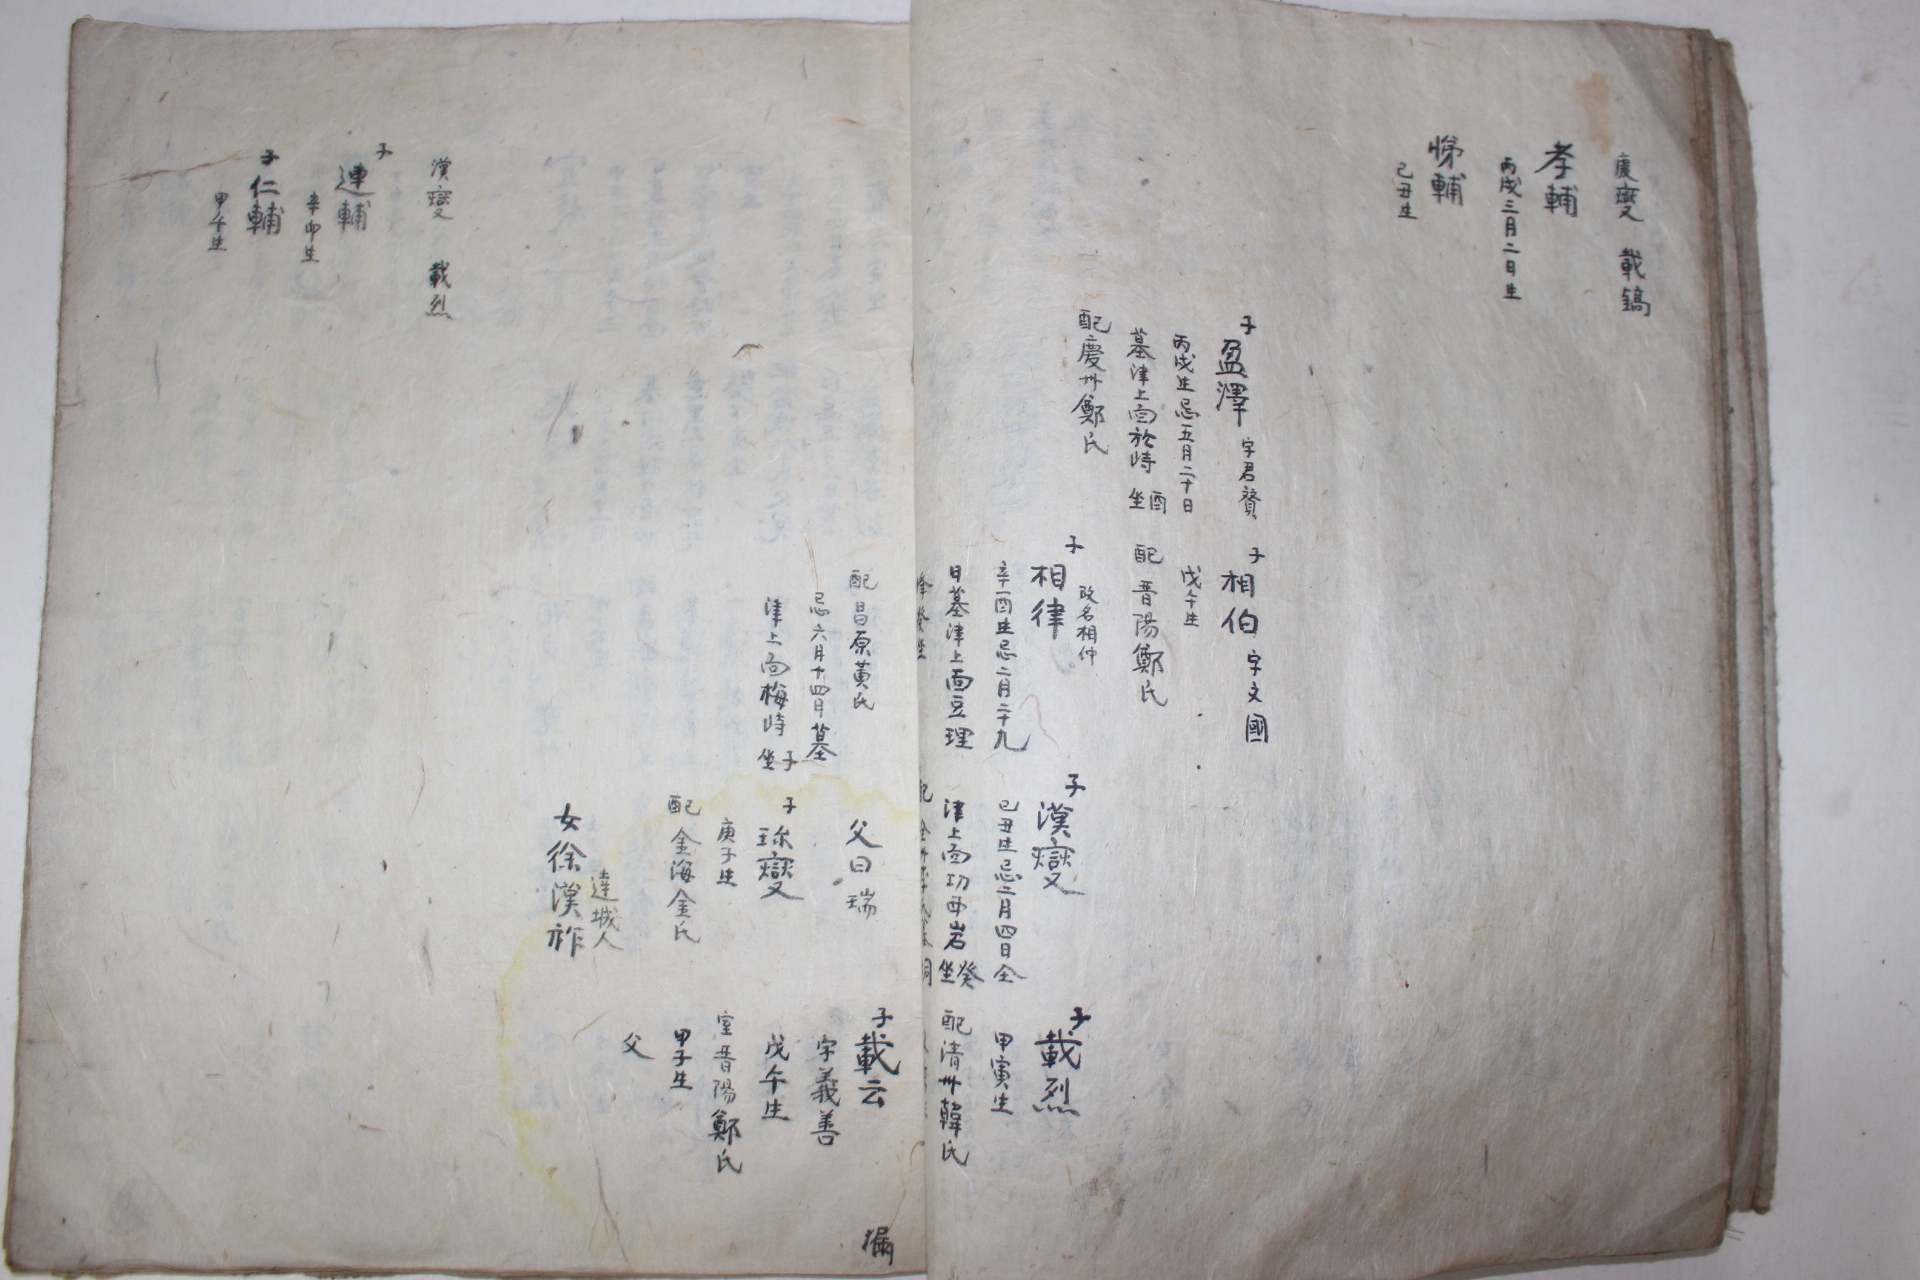 慶燮 載鎬
孝輔
丙戌三月二日生
悌輔
己丑生
子
盈澤 字君賛
丙戌生忌五月二十日
墓津上面於峙 酉坐
配慶州鄭氏
子
相伯 字文國
戊午生
配晋陽鄭氏
子
相律 改名相仲
辛酉生忌二月二十九
日墓津上面豆理
峰癸坐
配昌原黃氏
忌六月十四日墓
津上面梅峙 子坐
子
漢燮
己丑生忌二月四日仝
津上面功西岩 癸坐
子
載烈
甲寅生
配清州韓氏
父曰瑞
子
珎燮
庚子生
配金海金氏
女徐漢祚 達城人
子
載云
字義善
戊午生
室晋陽鄭氏
甲子生
父
漢燮 載烈
子
連輔
辛卯生
子仁輔
甲午生